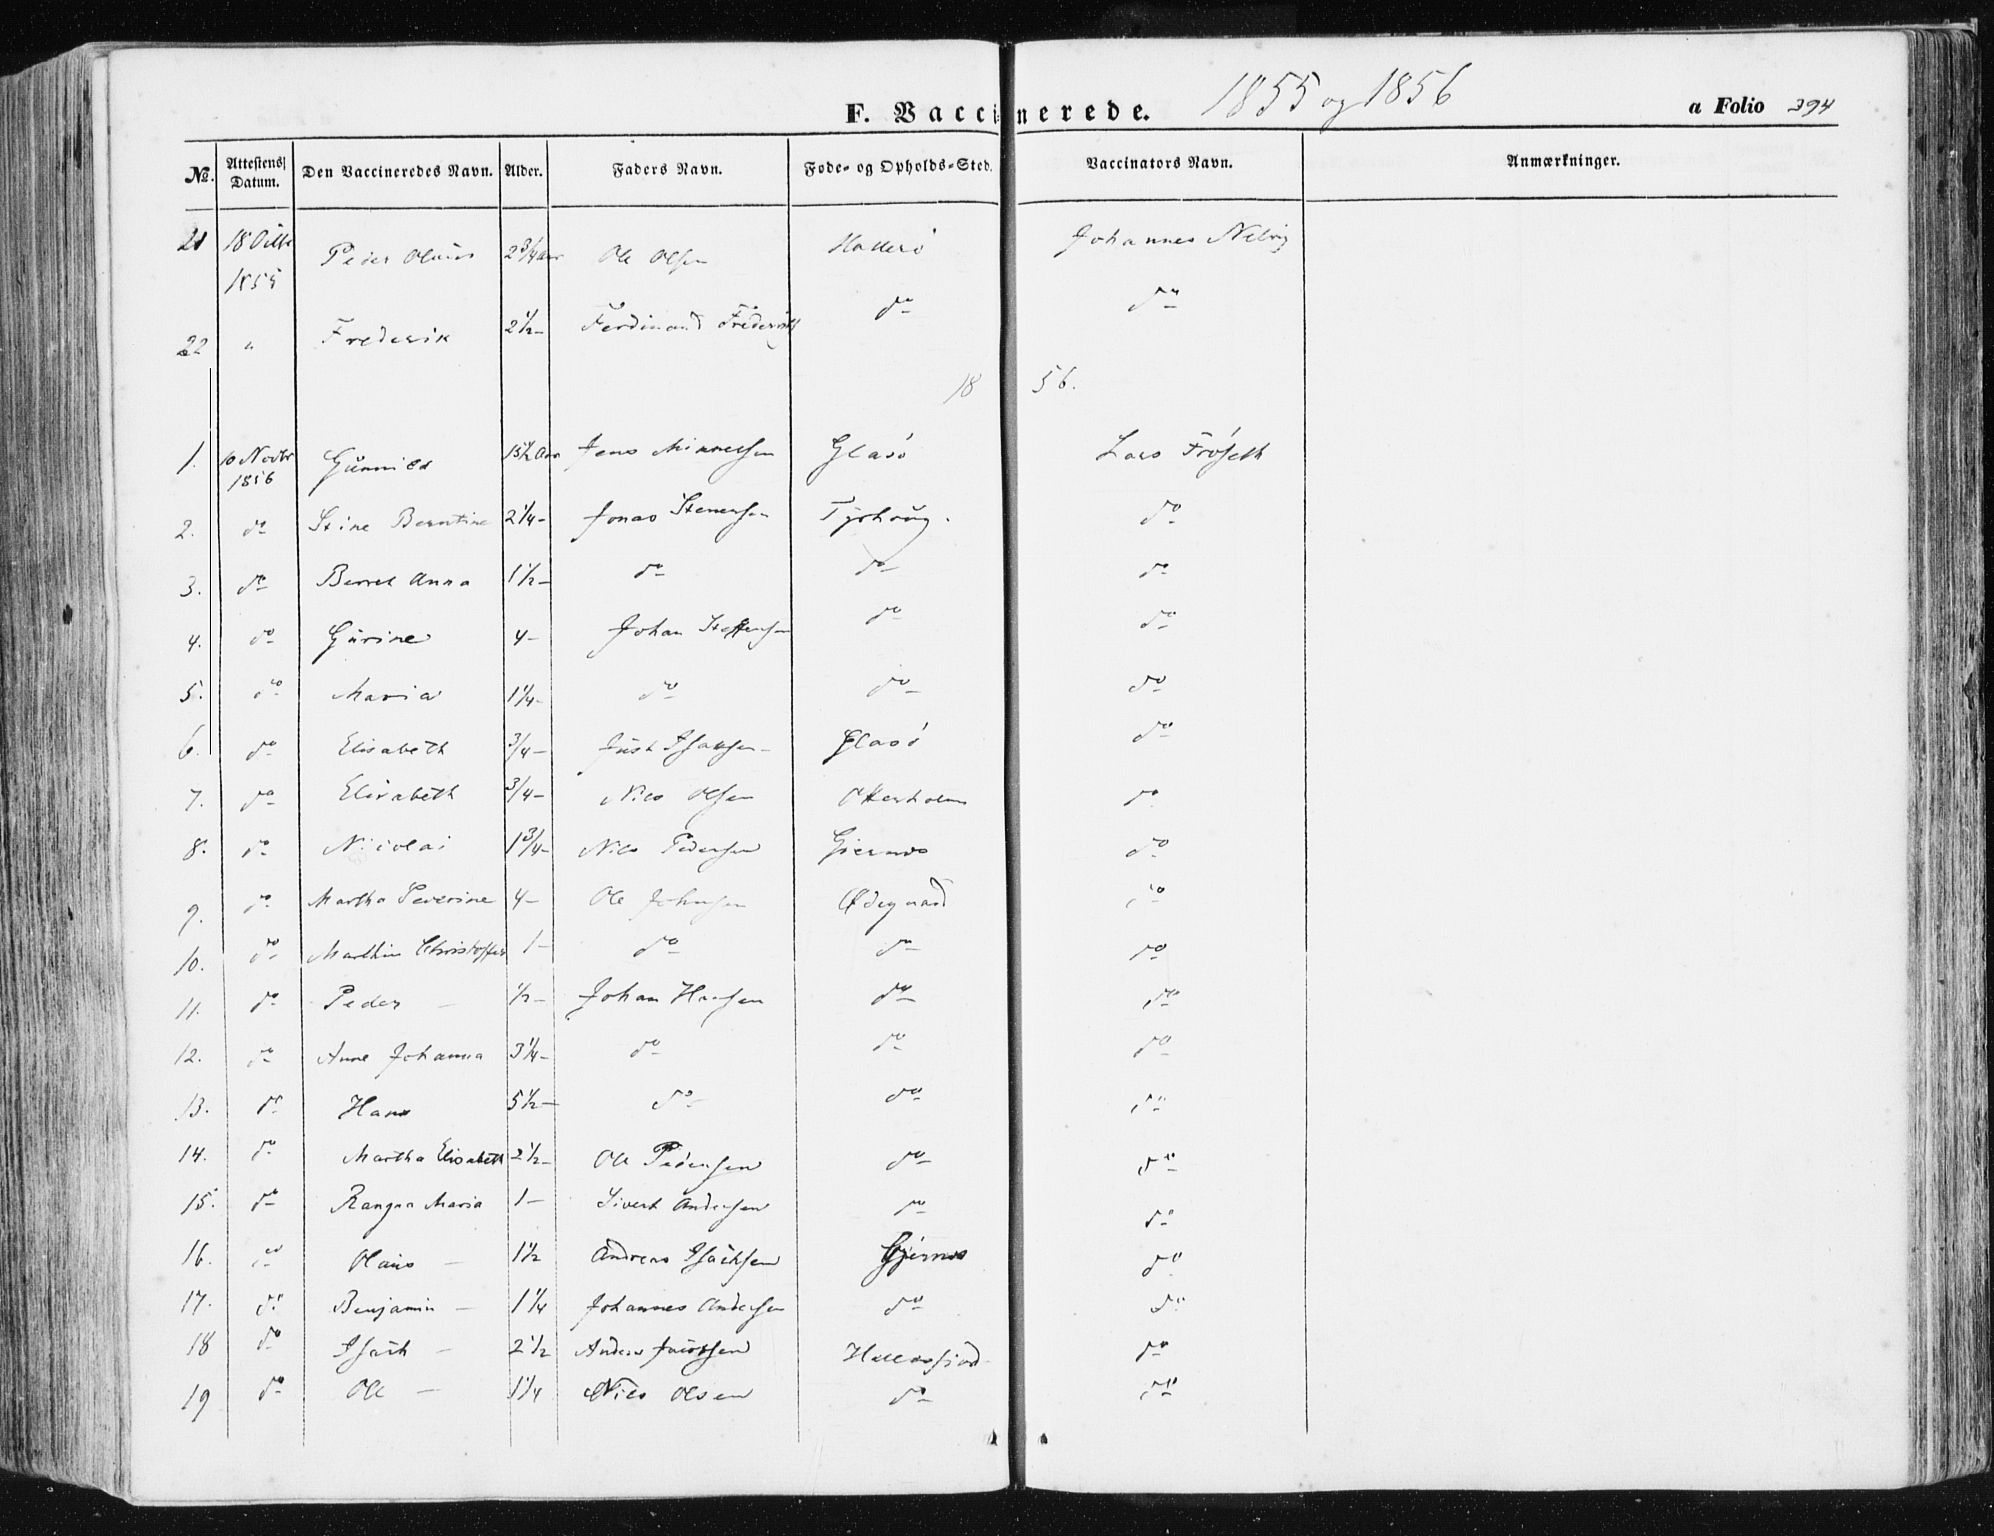 F. Vaccinerede. 1855 og 1856 a Folio 394
No. Attestens Datum. Den Vaccineredes Navn. Alder. Faders Navn. Føde- og Opholds-Sted. Vaccinators Navn. Anmærkninger.
21 18 Octbr 1855 Peder Olaus 2 3/4 Aar Ole Olsen Johannes
22 " Frederik 2 1/2 - Ferdinand do do
1856.
1. 10 Novbr 1856 Gunnild 15 1/2 Aar Jens Glasø Lars Frøseth
2. do Stine Berntine 2 1/4 - Jonas Tyrhoug. do
3. do Berret Anna 1 1/2 - do do do
4. do Gurine 4 - Johan Steffensen do do
5. do Maria 1 1/4 - do do do
6. do Elisabeth 3/4 - Just Isaksen - Glasø do
7. do Elisabeth 3/4 - Nils Olsen Otterholm do
8. do Nicolai 1 3/4 - Nils Pedersen Gjernes do
9. do Martha Severine 4 - Ole Johnsen Ødegaard do
10. do Marthin Christoffer 1 - do do do
11. do Peder - 1/2 - Johan Hansen do do
12. do Anne Johanna 3 1/4 - do do do
13. do Hans 5 1/2 - do do do
14. do Martha Elisabeth 2 1/2 - Ole Pedersen do do
15. do Rangna Maria 1 - Sivert Andersen do do
16. do Olaus - 1 1/2 Andreas Isachsen Gjernes do
17. do Benjamin - 1 1/4 Johannes Andersen do do
18 do Isach - 2 1/2 Anders Jacobsen do
19 do Ole - 1 1/4 Nils Olsen do do